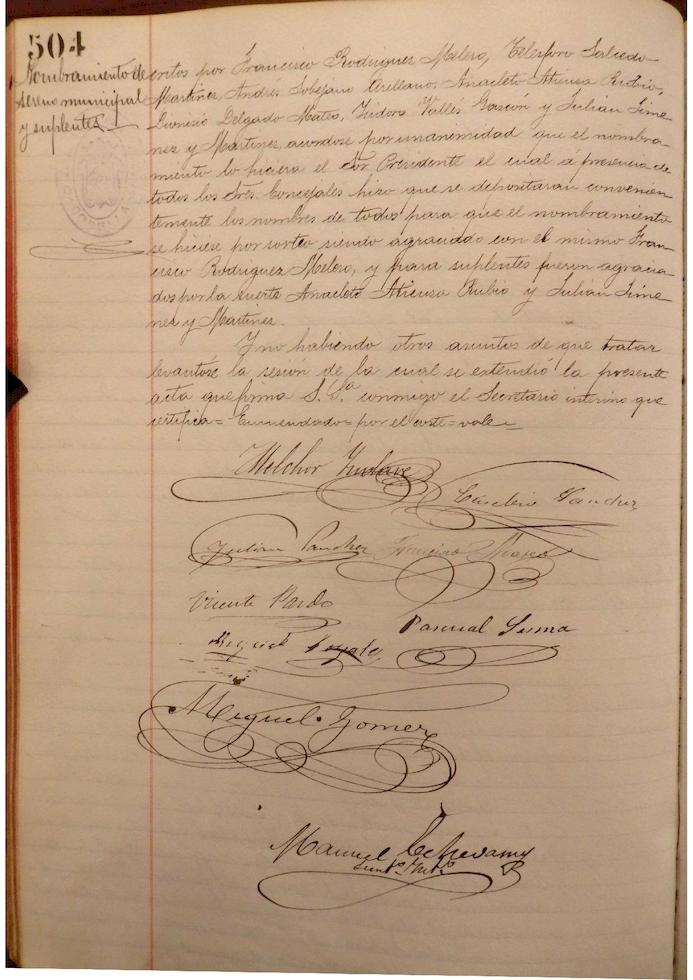 504
Nombramiento de
sereno municipal
y suplentes.
critos por Francisco Rodriguez Melero, Telesforo Salcedo
Martinez, Andrés Sobejano Arellano, Anacleto Atienza Rubio,
Dionisio Delgado Mateo, Ysidoro Vallés Gascón y Julian Jime
nez y Martinez, acordose por unanimidad que el nombra-
miento lo hiciera el Sor Presidente el cual á presencia de
todos los Sres. Concejales hizo que se depositaran convenien
temente los nombres de todos para que el nombramiento
se hiciese por sorteo siendo agraciado con el mismo Fran-
cisco Rodriguez Melero, y para suplentes fueron agracia-
dos por la suerte Anacleto Atienza Rubio y Julian Jime
nez y Martinez.
Y no habiendo otros asuntos de que tratar
levantóse la sesion de la cual se extendió la presente
acta que firma S.Sª conmigo el Secretario interino que
certifica = Enmendado = por el corte = vale =
Melchor
Eusebio Sanchez
Julian Sanchez Francisco
Vicente Pardo
Pascual Lerma
Miguel
Miguel Gomez
Manuel Echevarria